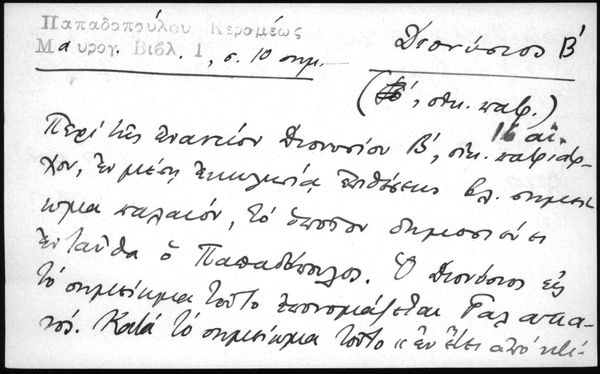 Παπαδοπούλου Κεραμέως
Μαυρογ. Βιβλ. 1, σ. 10 σημ.
Διονύσιος Β΄
(Β΄, οἰκ. πατρ.)
16 αἰ.
Περὶ τῆς ἐναντίον Διονυσίου Β΄, οἰκ. πατριάρ-
χου, ἐν μέσῃ ἐκκλησίᾳ ἐπιθέσεως βλ. σημεί-
ωμα παλαιόν, τὸ ὁποῖον δημοσιεύει
ἐνταῦθα ὁ Παπαδόπουλος. Ὁ Διονύσιος εἰς
τὸ σημείωμα τοῦτο ἐπονομάζεται Γαλατια-
νός. Κατὰ τὸ σημείωμα τοῦτο «ἐν ἔτει ἀπὸ κτί-